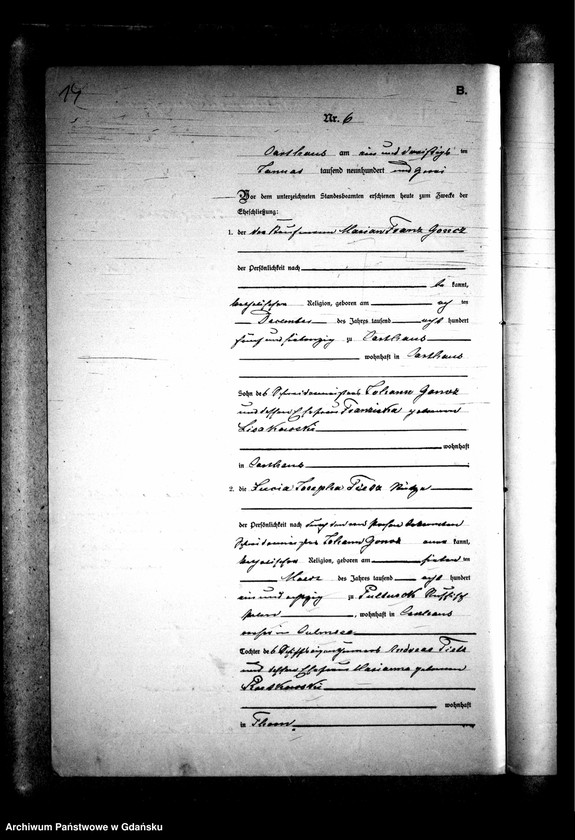 14
B.
Nr. 6
Carthaus am ein und dreißigs ten
Januar tausend neunhundert und zwei
Vor dem unterzeichneten Standesbeamten erschienen heute zum Zwecke der
Eheschließung:
1. der Kaufmann Marian Franz Goncz
der Persönlichkeit nach
be kannt,
katholischer Religion, geboren am ach ten
December des Jahres tausend acht hundert
fünf und siebenzig zu Carthaus
wohnhaft in Carthaus
Sohn des Schneidermeisters Johann Goncz
und dessen Ehefrau Franziska geborenen
Lisakowski
wohnhaft
in Carthaus
2. die Lucia Josepha Tietz
der Persönlichkeit nach durch den
Schneidermeister Johann Goncz aner kannt,
katholischer Religion, geboren am sieben ten
März des Jahres tausend acht hundert
ein und achtzig zu Pultusk Russisch
Polen, wohnhaft in Carthaus
vorher in Culmsee
Tochter des Schiffseigenthümers Andreas Tietz
und dessen Ehefrau Marianna geborenen
wohnhaft
in Thorn.
Archiwum Państwowe w Gdańsku